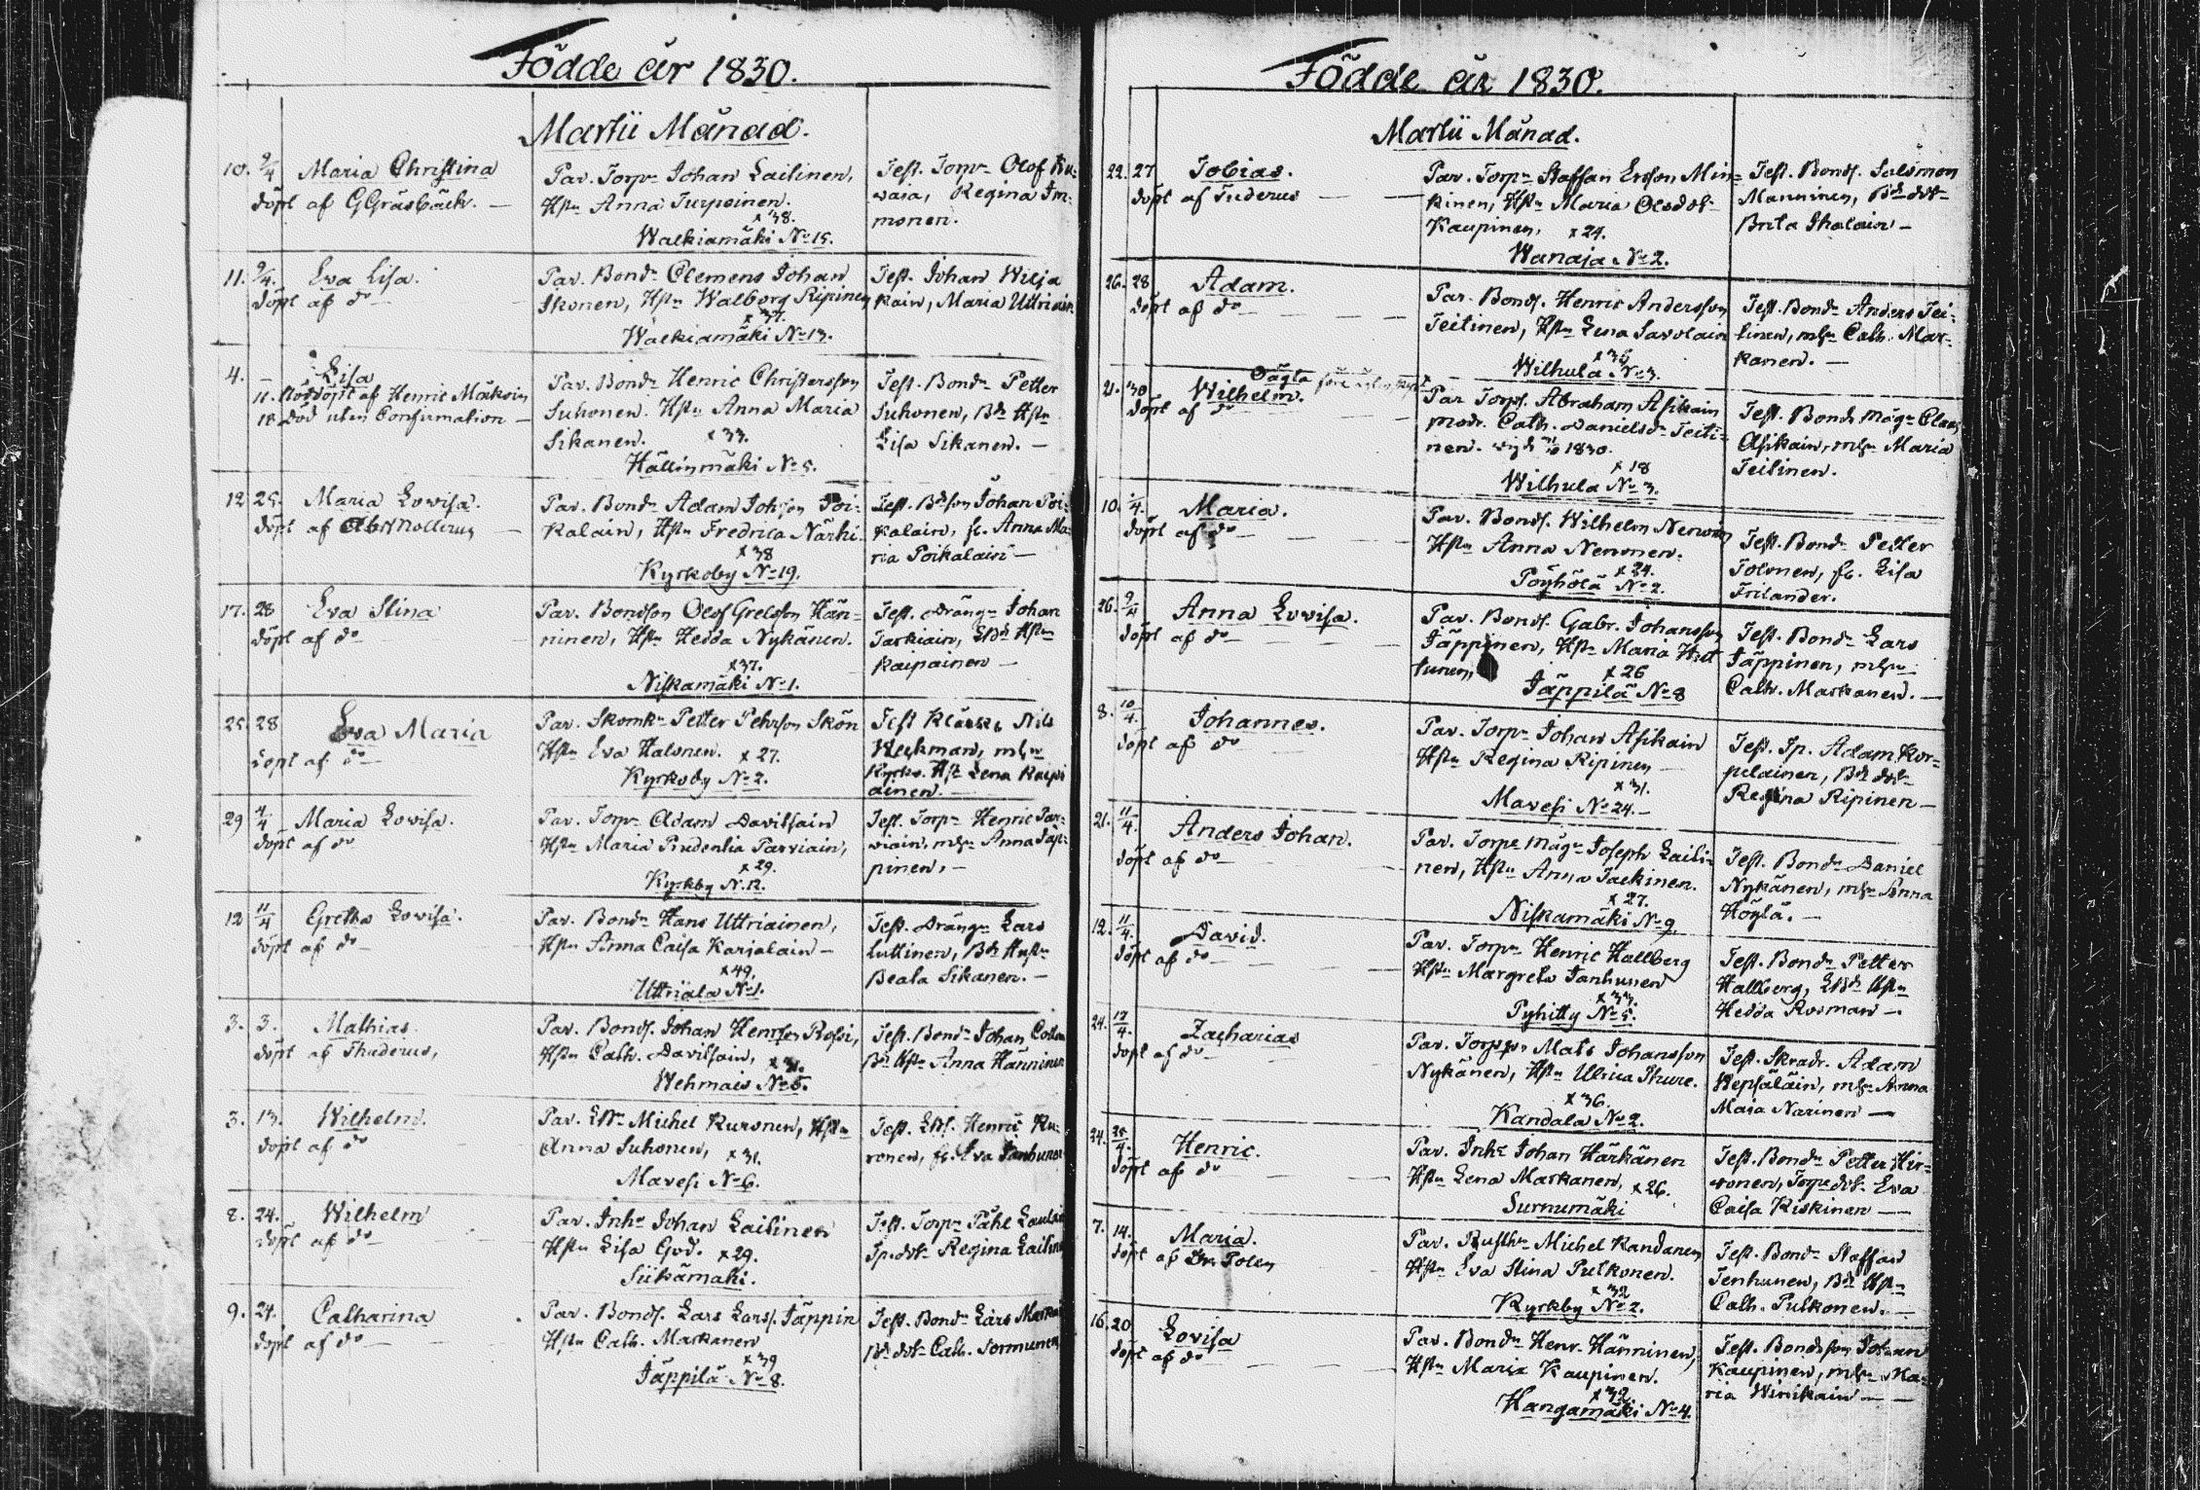 Födde år 1830.
Martii Månad.
10. 9/4 Maria Christina
döpt af GGråsbäck.
Par. Torpn Johan Lailinen,
Hstu Anna Turpoinen.
x 38.
Walkiamäki No 15.
Test. Torpn Olof Ku-
waia, Regina Im-
monen.
11. 9/4. Eva Lisa.
döpt af do
Par. Bondn Clemens Johan
Ikonen, Hstu Walborg Ripinen
x 37.
Walkiamäki No 13.
Test. Johan Wilja
kain, Maria Uttriain
4. – Lisa
11. Nöddöpt af Henric
18. död utan Confirmation –
Par. Bondn Henric Christersson
Suhonen. Hstu Anna Maria
Sikanen. x 33.
Hällinmäki No 5.
Test. Bondn Petter
Suhonen, Bd. Hstu
Lisa Sikanen. –
12 25. Maria Lovisa.
döpt af
Par. Bondn Adam Johsson Poi-
kalain, Hstu Fredrica Närhi
x 38
Kyrkoby No 19.
Test. Bdson Johan Poi-
kalain, fl. Anna Ma-
ria Poikalain –
17. 28 Eva Stina
döpt af do
Par. Bondson Olof Grelsson Hän-
ninen, Hstu Hedda Nykänen.
x 37.
Niskamäki No 1.
Test. Drängn Johan
Tarkiain, Hstu
Kaipainen –
25. 28 Eva Maria
döpt af do
Par. Skomkr Petter Pehrson Skön
Hstu Eva Halonen. x 27.
Kyrkoby No 2.
Test Nils
Weckman, mln
Kyrko. Hst Lena Kaipi
ainen. –
29 4/4 Maria Lovisa.
döpt af do
Par. Torpn Adam Davitsain
Hstu Maria Prudentia Parviain,
x 29.
Kyrkby N. 12.
Test. Torpn Henric Par-
viain, mln Anna Jäp-
pinen, –
12 11/4 Gretha Lovisa.
döpt af do
Par. Bondn Hans Uttriainen,
Hstu Anna Caisa Karjalain –
x 49.
Uttriala No 1.
Test. Drängn Lars
Luttinen, Bd. Hustn
Beata Sikanen. –
3. 3. Mathias
döpt af Thuderus,
Par. Bonds. Johan Henrsson Rossi,
Hstu Cath. Davitsain,
x 31.
Wehmais No 5.
Test. Bondn Johan
Bdn Hstu Anna Hänninen
3. 13. Wilhelm.
döpt af do
Par. Michel Kuronen, Hstu
Anna Suhonen, x 31.
Mavesi No 6.
Test. Henric Ku-
ronen, fl. Eva Janhunen
8. 24. Wilhelm
döpt af do
Par. Inhr Johan Lailinen
Hstu Lisa God. x 29.
Siikämäki.
Test. Torpn Påhl
Tp. dotr Regina Lailine
9. 24. Catharina
döpt af do
Par. Bonds. Lars Larss. Jäppin
Hstu Cath. Markanen
x 39
Jäppilä No 8.
Test. Bondn Lars Marka
Bd dotr Cath. Tormunen
Födde år 1830.
Martii Månad.
22. 27 Tobias.
döpt af Tuderus
Par. Torpn Staffan Ersson Min-
kinen, Hstu Maria Olsdotr
Kaupinen, x 24.
Wanaja No 2.
Test. Bonds. Salomon
Manninen, Bd. dotr
Brita Ihalain –
26. 28 Adam.
döpt af do
Par. Bonds. Henric Andersson
Teitinen, Hstu Lena Savolain
x 36
Wilhula No 3.
Test. Bondn Anders Tei-
tinen, mln Cath. Mar-
kanen. –
21. 30 Wilhelm.
döpt af do
Par. Torps. Abraham Asikain
modr. Cath. Danielsdr Teiti-
nen. 1830.
x 18
Wilhula No 3.
Test. Bonds Mågn Claas
Asikain, mln Maria
Teitinen.
10. 1/4. Maria.
döpt af do
Par. Bonds. Wilhelm Nenoin
Hstu Anna Nenonen.
x 24.
Pöyhölä No 2.
Test. Bondn Petter
Tolonen, fl. Lisa
Frilander.
26. 9/4 Anna Lovisa.
döpt af do
Par. Bonds. Gabr. Johansson
Jäppinen, Hstu Maria Hut
tunen, x 26
Jäppilä No 8
Test. Bondn Lars
Jäppinen, mln
Cath. Markanen. –
8. 10/4. Johannes.
döpt af do
Par. Torpn Johan Asikain
Hstu Regina Ripinen –
x 31.
Mavesi No 24. –
Test. Tp. Adam Kor-
pelainen, Bd dotr
Regina Ripinen –
21. 11/4. Anders Johan.
döpt af do
Par. Torpe mågn Joseph Laili-
nen, Hstu Anna Tackinen.
x 27.
Niskamäki No 9.
Test. Bondn Daniel
Nykänen, mln Anna
Höylä. –
12. 11/4. David.
döpt af do
Par. Torpn Henric Hallberg
Hstu Margreta Janhunen
x 33.
Pyhitty No 5.
Test. Bondn Petter
Hallberg, Hstu
Hedda Rosman –
24. 17/4. Zacharias
döpt af do
Par. Torpsn Mats Johansson
Nykänen, Hstu Ulrica Thure.
x 36.
Kandala No 2.
Test. Skradr. Adam
Wepsäläin, mln Anna
Maja Narinen –
24. 25/4. Henric.
döpt af do
Par. Inhr Johan Härkänen
Hstu Lena Markanen, x 26.
Surnumäki
Test. Bondn Petter Hir-
vonen, Torpe dotr Eva
Caisa Kiskinen –
7. 14. Maria.
döpt af
Par. Rusthn Michel Kandanen
Hstu Eva Stina Pulkonen.
x 32
Kyrkby No 2.
Test. Bondn Staffan
Tenhunen, Bd Hstu
Cath. Pulkonen. –
16. 20 Lovisa
döpt af do
Par. Bondn Henr. Hänninen,
Hstu Maria Kaupinen.
x 32.
Hangamäki No 4.
Test. Bondsson Johan
Kaupinen, mln Ma-
ria Winikain –